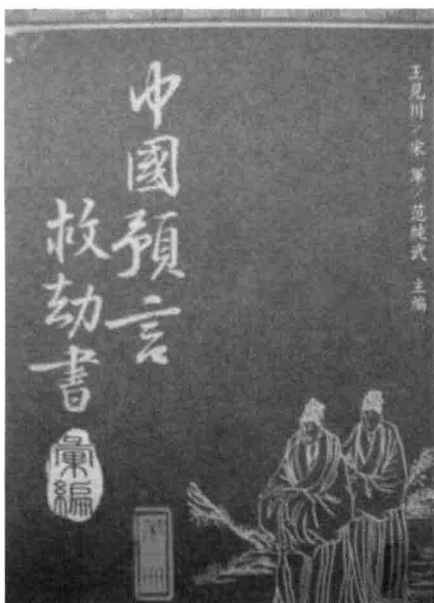 王見川/宋軍/范純武 主編
中國預言
救劫書
彙編